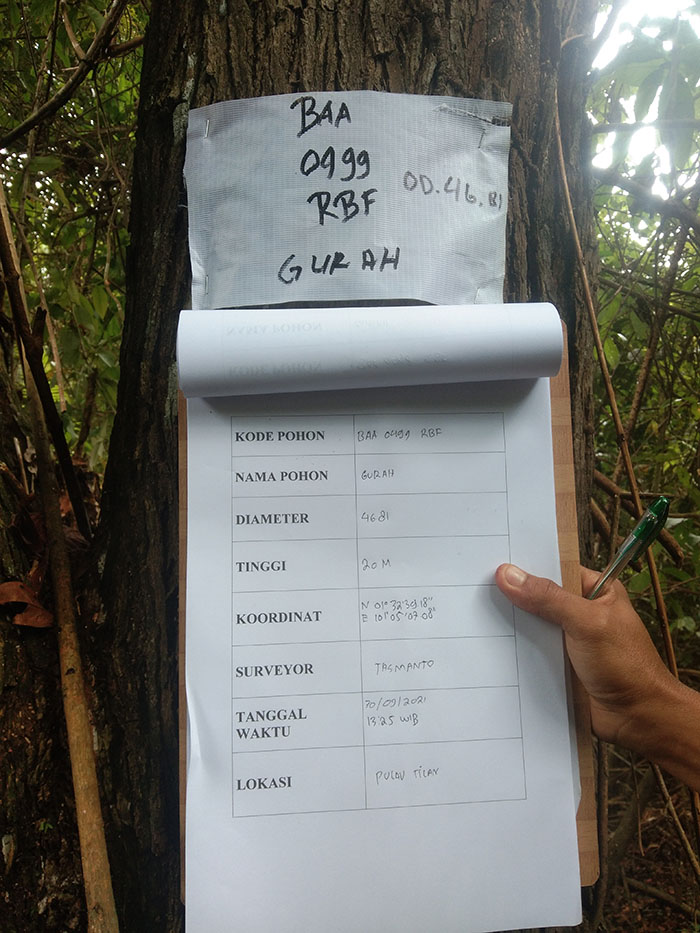 BAA
0499
RBF
OD.46.81
GURAH
NAMA POHON
KODE POHON
KODE POHON BAA 0499 RBF
NAMA POHON GURAH
DIAMETER 4681
TINGGI 20 M
KOORDINAT N 01° 32'30.18"
E 101° 05'07 08"
SURVEYOR TASMANTO
TANGGAL 30/09/2021
WAKTU 13:25 WIB
LOKASI PULAU TILAN